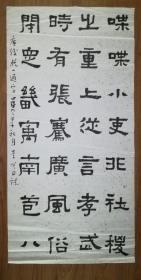 喋喋小吏非社稷
之重上從言孝武
時有張騫廣風俗
開定畿寓南苞八